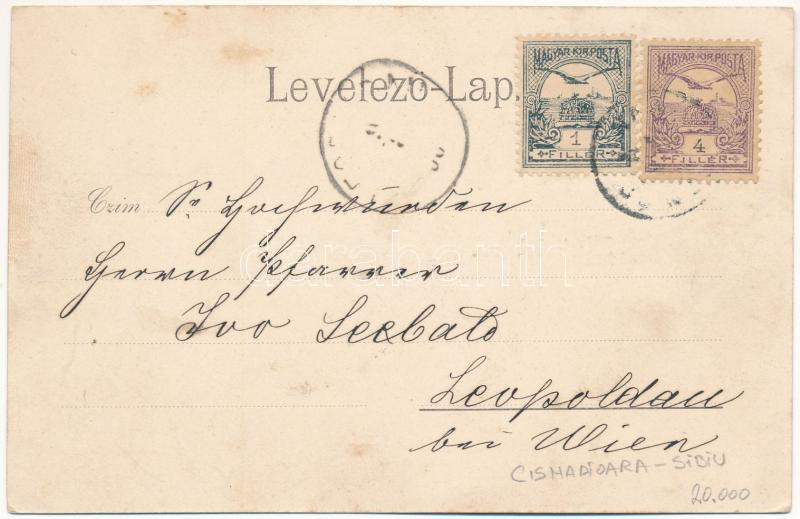 Levelező-Lap.
MAGYAR KIR. POSTA
1
FILLÉR
MAGYAR KIR. POSTA
4
FILLÉR
Czim Sr Hochwürden
Herrn Pfarrer
Ivo Seebald
Leopoldau
bei Wien
CISNADIOARA - SIBIU
20.000
darabanth